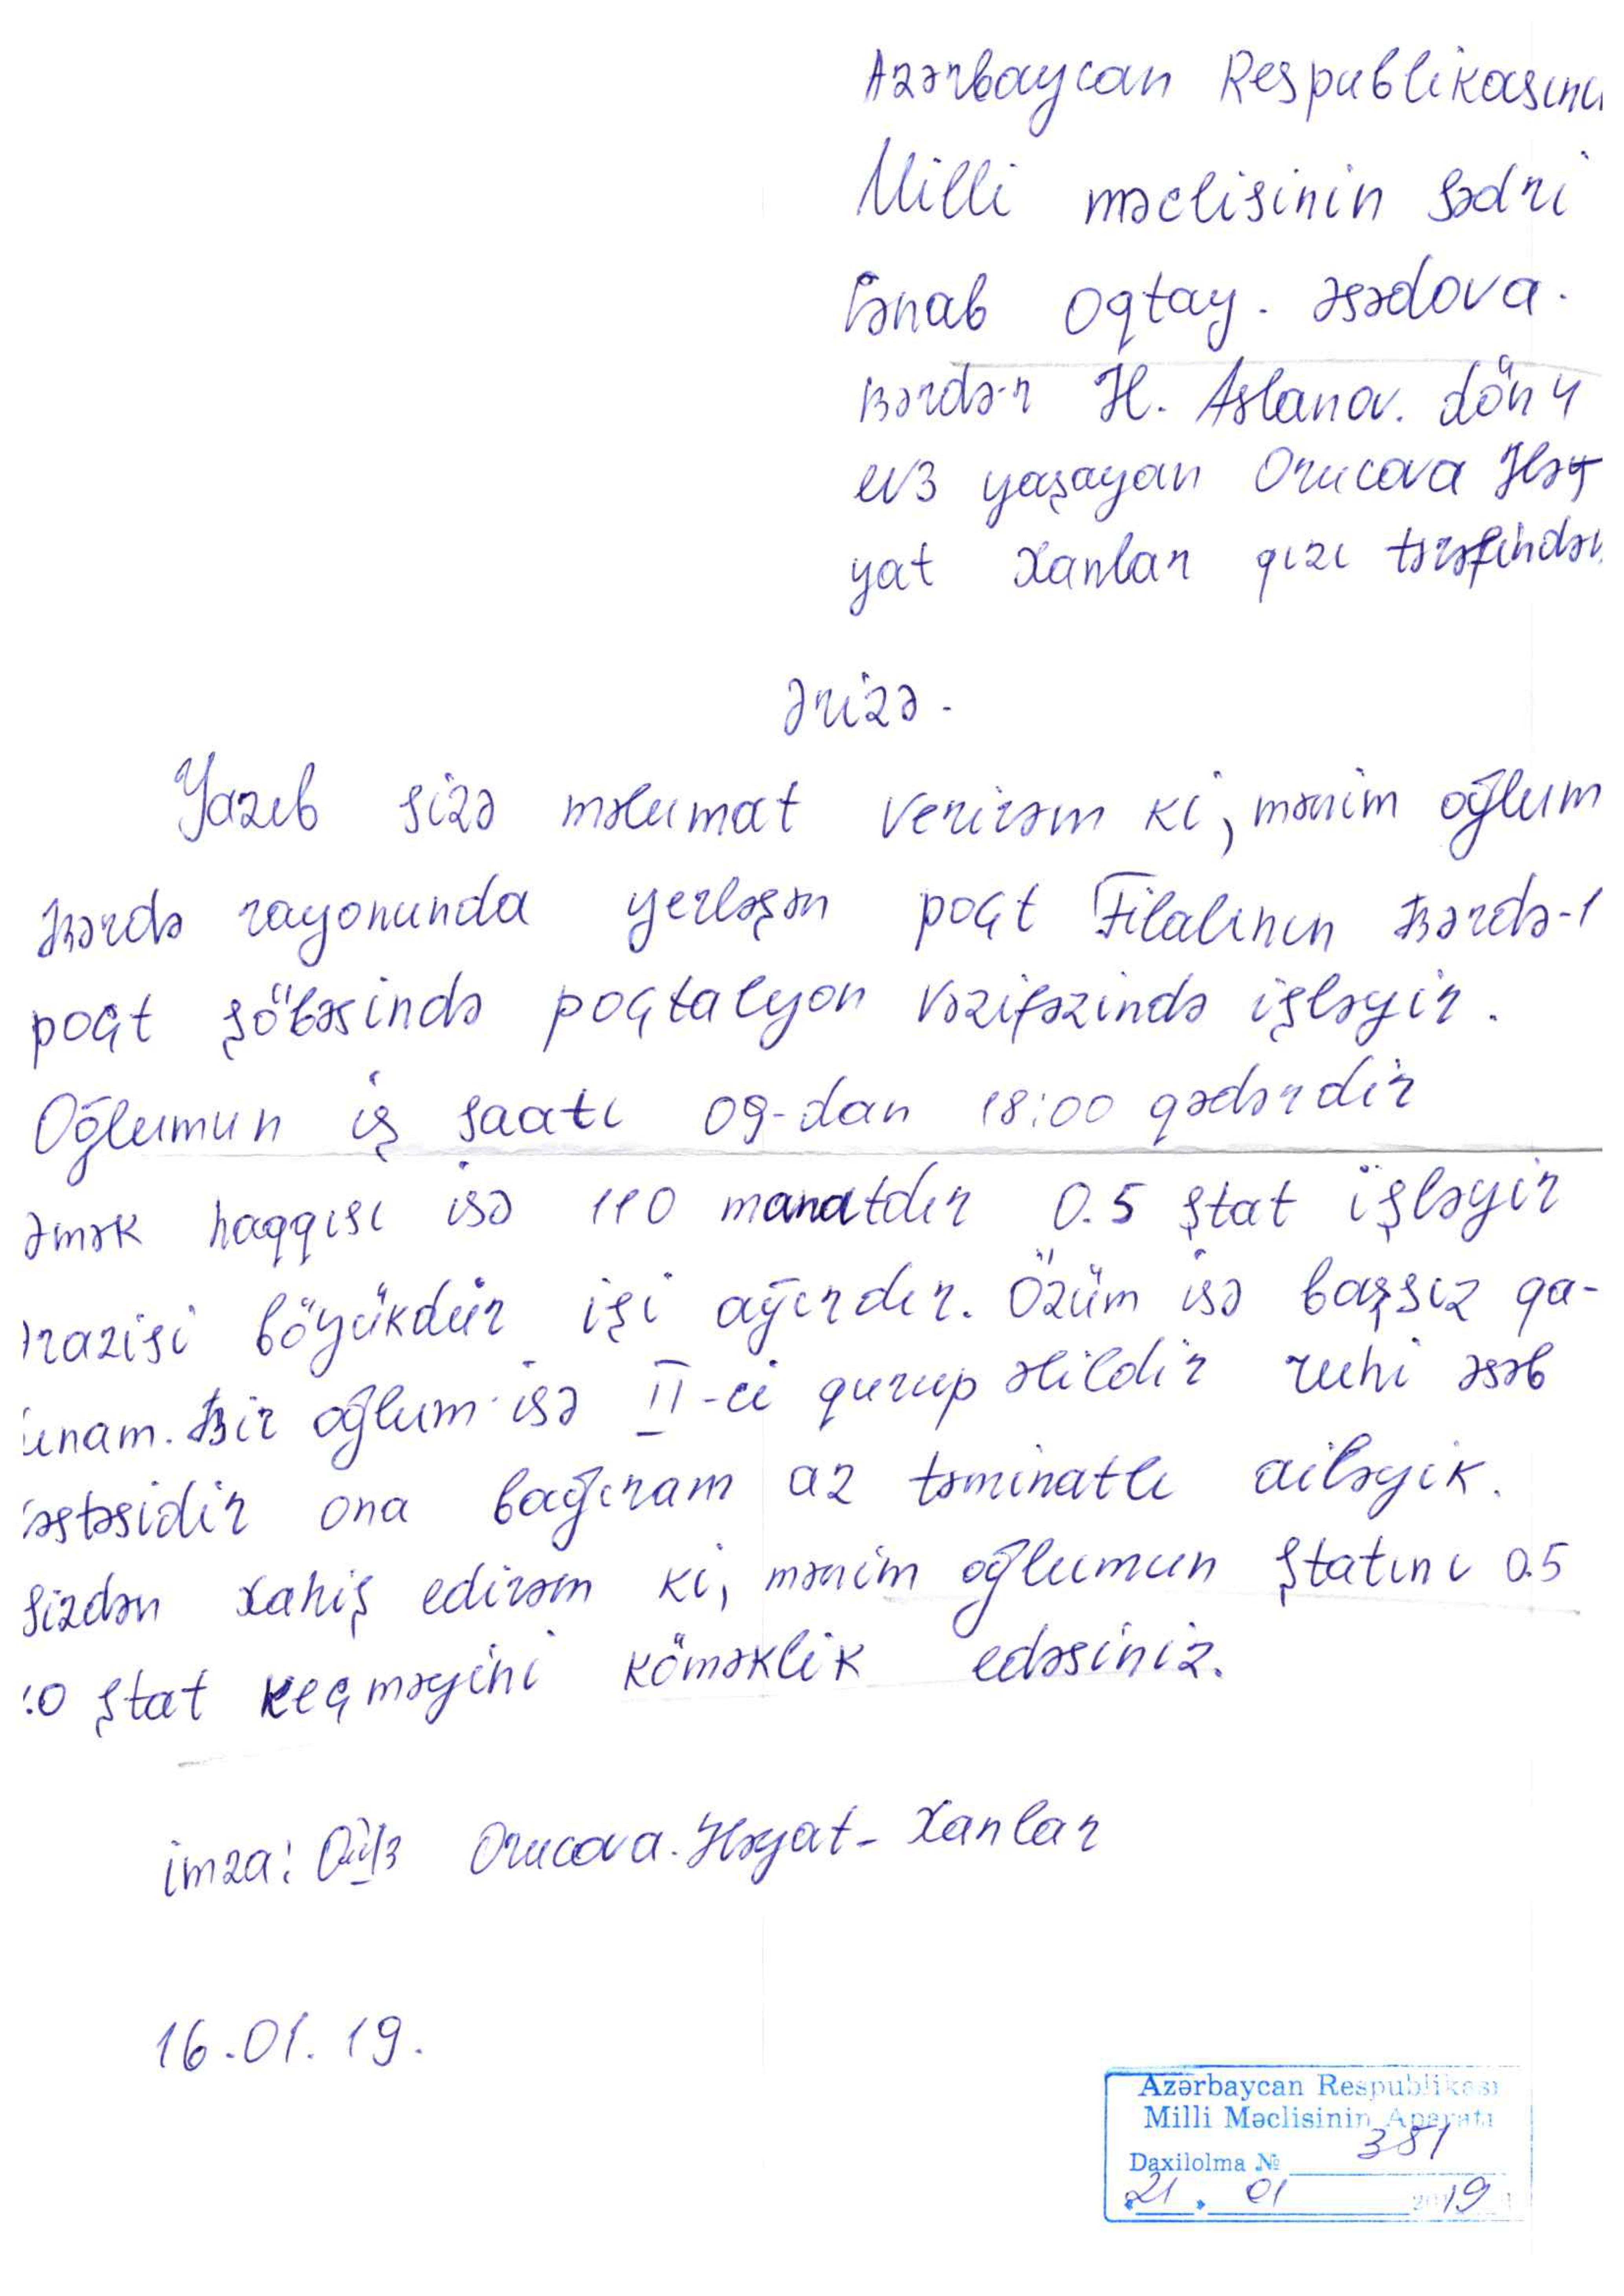 Azərbaycan Respublikasını
Milli məclisinin sədri
Cənab Oqtay. Əsədova.
Bərdə-r H. Aslanov. dön 4
ev3 yaşayan Orucova Həy
yat Xanlar qızı tərəfindən
Ərizə.
Yazıb sizə məlumat verirəm ki, mənim oğlum
Bərdə rayonunda yerləşən poçt Filalının Bərdə-1
poçt şöbəsində poçtalyon vəzifəzində işləyir.
Oğlumun iş saatı 09-dan 18:00 qədərdir
Əmək haqqısı isə 110 manatdır 0.5 ştat işləyir
razisi böyükdür işi ağırdır. Özüm isə başsız qa-
ınam. Bir oğlum isə II-ci qurup əlildir ruhi əsəb
əstəsidir ona baxıram az təminatlı ailəyik.
Sizdən xahiş edirəm ki, mənim oğlumun ştatını 0.5
.0 ştat keçməyini köməklik edəsiniz.
imza: Orucova. Həyat- Xanlar
16.01.19.
Azərbaycan Respublikası
Milli Məclisinin Aparatı
Daxilolma № 381
21. 01 2019